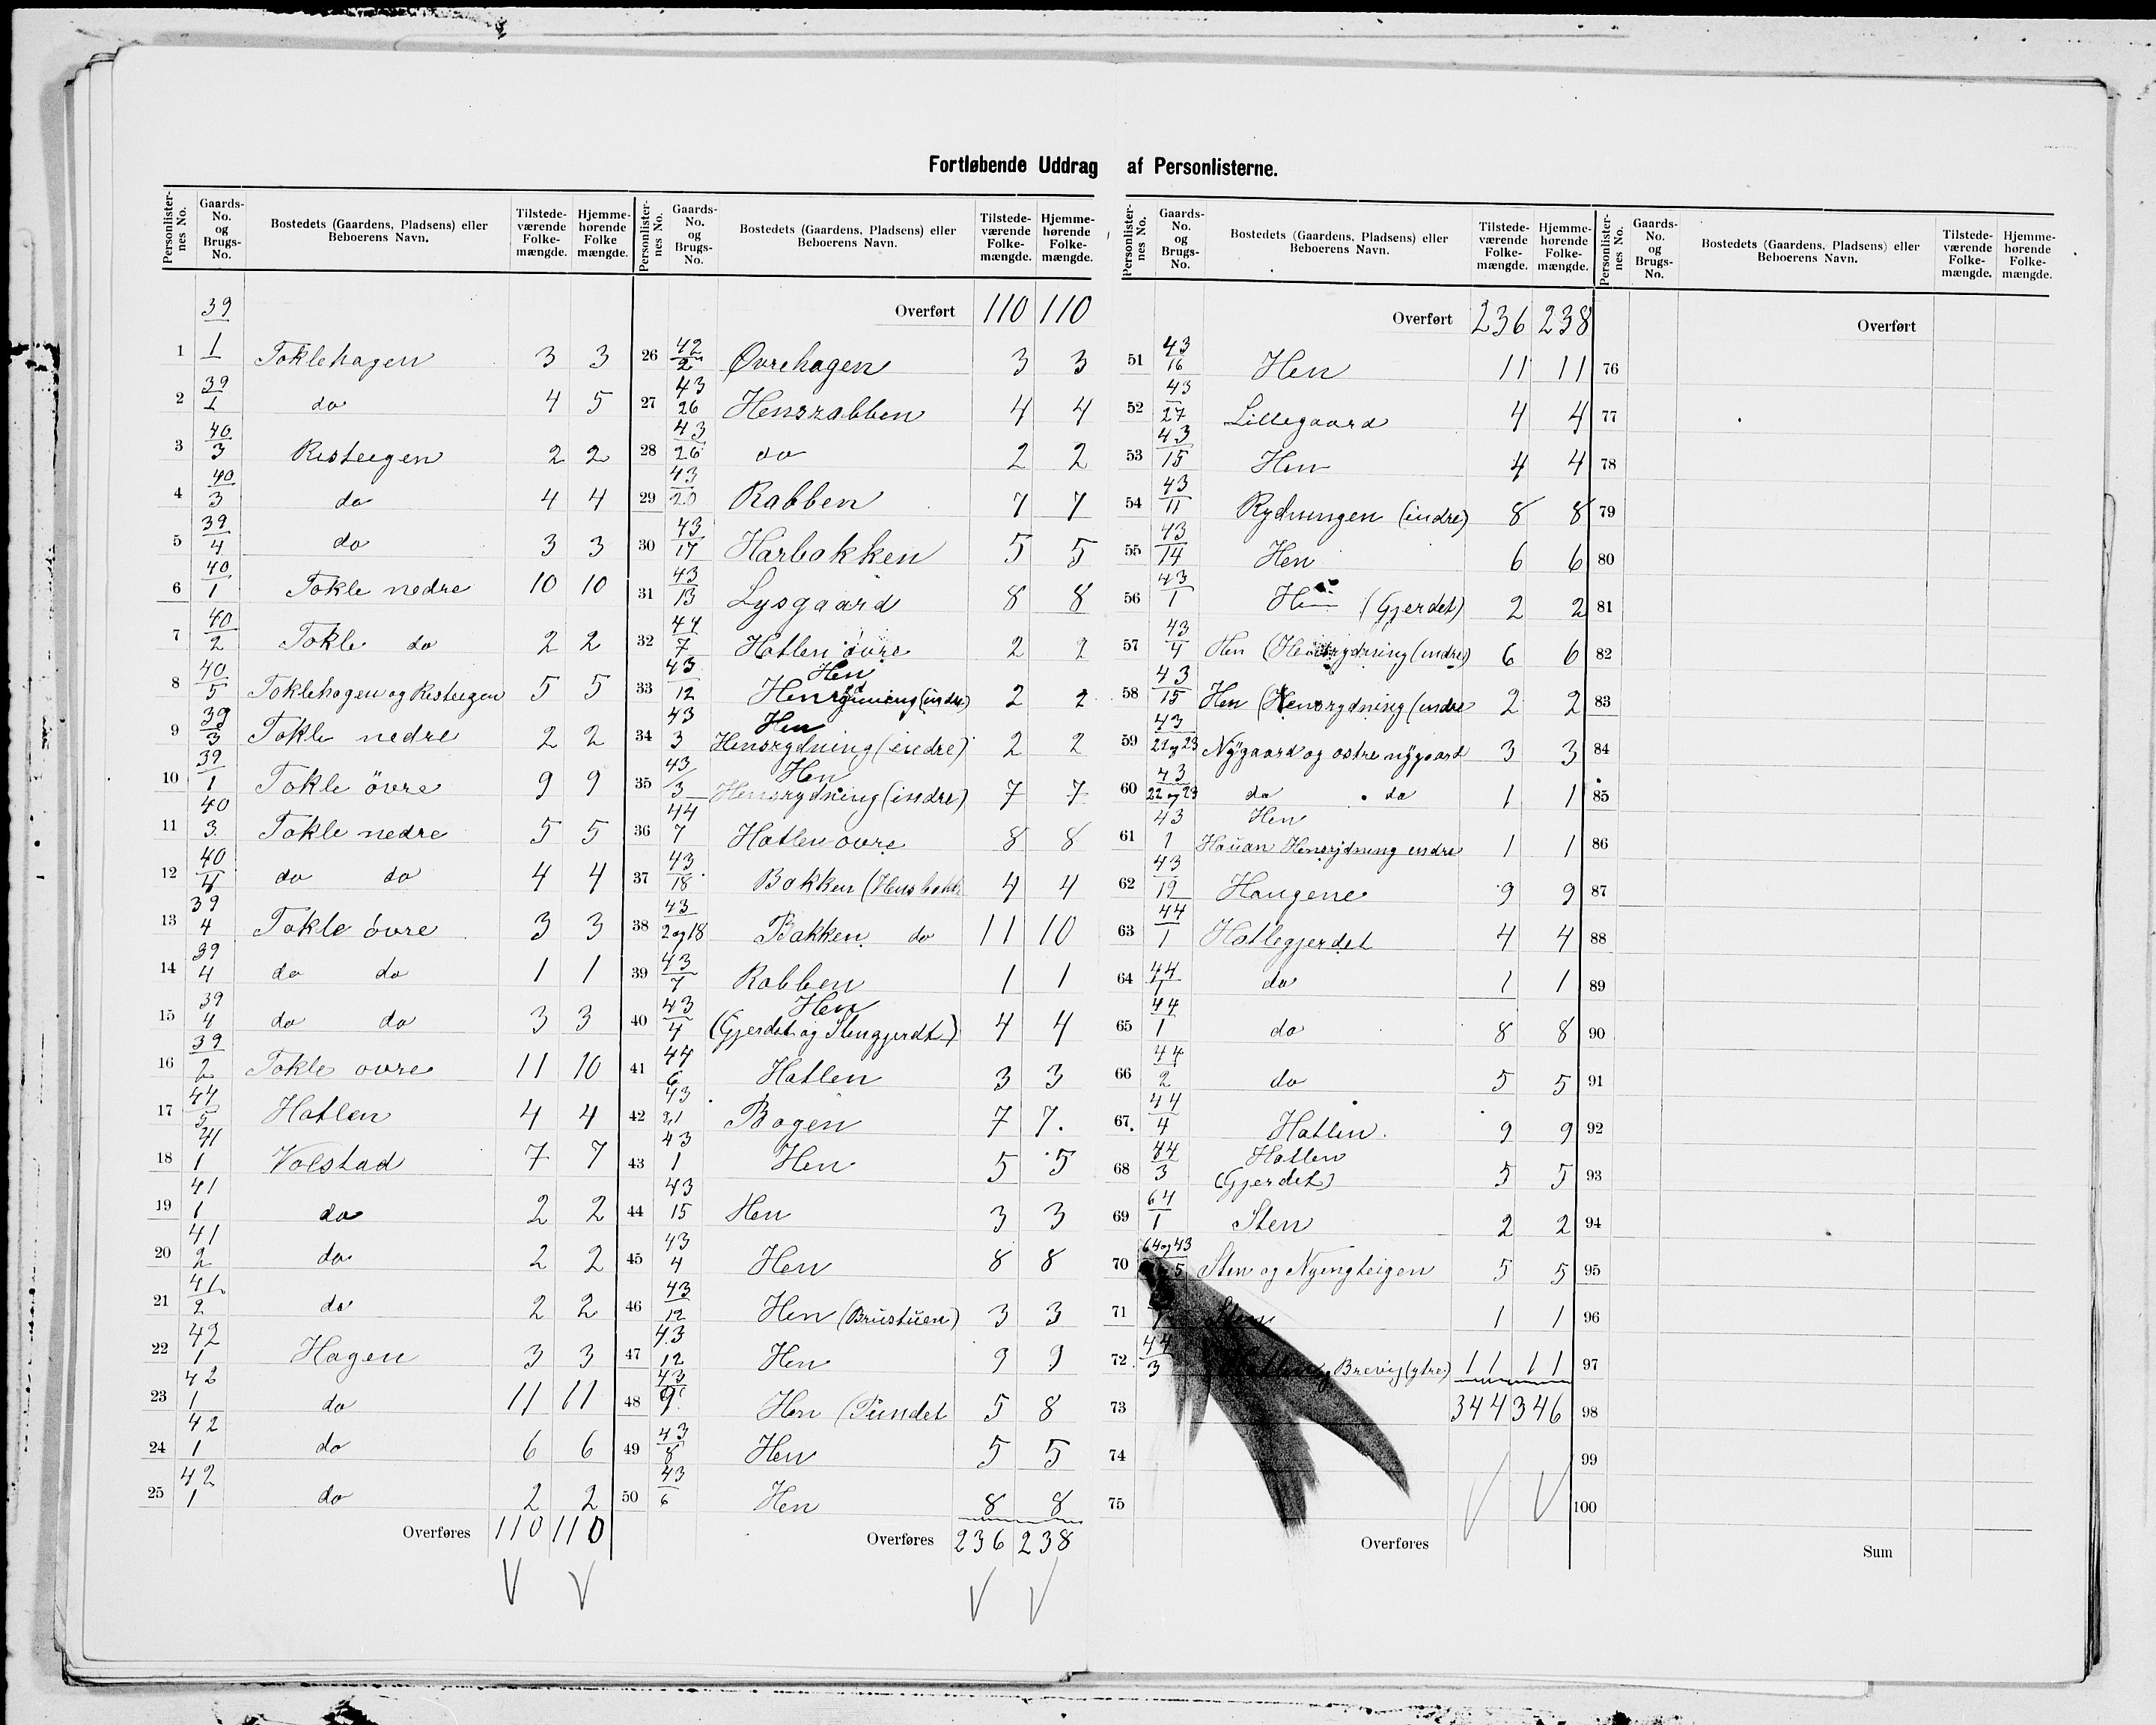 Fortløbende Uddrag af Personlisterne.
Personlister-nes No. Gaards-No. og Brugs-No. Bostedets (Gaardens, Pladsens) eller Beboerens Navn. Tilstede-værende Folke-mængde. Hjemme-hørende Folke mængde.
1 39/1 Toklehagen 3 3
2 39/1 do 4 5
3 40/3 Risteigen 2 2
4 40/3 do 4 4
5 39/4 do 3 3
6 40/1 Tokle nedre 10 10
7 40/2 Tokle do 2 2
8 40/5 Toklehagen og Risteigen 5 5
9 39/3 Tokle nedre 2 2
10 39/1 Tokle övre 9 9
11 40/3 Tokle nedre 5 5
12 40/4 do do 4 4
13 39/4 Tokle övre 3 3
14 39/4 do do 1 1
15 39/4 do do 3 3
16 39/2 Tokle ovre 11 10
17 44/5 Hatlen 4 4
18 41/1 Volstad 7 7
19 41/1 do 2 2
20 41/2 do 2 2
21 41/2 do 2 2
22 42/1 Hagen 3 3
23 42/1 do 11 11
24 42/1 do 6 6
25 42/1 do 2 2
Overføres 110 110
Personlister-nes No. Gaards-No. og Brugs-No. Bostedets (Gaardens, Pladsens) eller Beboerens Navn. Tilstede-værende Folke-mængde. Hjemme-hørende Folke-mængde.
Overført 110 110
26 42/2 Øvrehagen 3 3
27 43/26 Hensrabben 4 4
28 43/26 do 2 2
29 43/20 Rabben 7 7
30 43/17 Harbakken 5 5
31 43/13 Lysgaard 8 8
32 44/7 Hatlen övre 2 2
33 43/12 Hen Hensrydning (indre) 2 2
34 43/3 Hen Hensrydning (indre) 2 2
35 43/3 Hen Hensrydning (indre) 7 7
36 44/7 Hatlen ovre 8 8
37 43/18 Bakken (Hensbakk 4 4
38 43/2 og 18 Bakken do 11 10
39 43/7 Rabben 1 1
40 43/4 Hen (Gjerdet og Stengjerdt) 4 4
41 44/6 Hatlen 3 3
42 43/21 Bogen 7 7.
43 43/1 Hen 5 5
44 43/15 Hen 3 3
45 43/4 Hen 8 8
46 43/12 Hen (Brustuen) 3 3
47 43/12 Hen 9 9
48 43/9 Hen (Tundet 5 8
49 43/8 Hen 5 5
50 43/6 Hen 8 8
Overføres 236 238
Personlister-nes No. Gaards-No. og Brugs-No. Bostedets (Gaardens, Pladsens) eller Beboerens Navn. Tilstede-værende Folke-mængde. Hjemme-hørende Folke-mængde.
Overført 236 238
51 43/16 Hen 11 11
52 43/27 Lillegaard 4 4
53 43/15 Hen 4 4
54 43/11 Rydningen (indre) 8 8
55 43/14 Hen 6 6
56 43/1 Hen (Gjerdet) 2 2
57 43/4 Hen (Hensrydning (indre) 6 6
58 43/15 Hen (Hensrydning (indre 2 2
59 43/21 og 23 Nygaard og ostre nygaard 3 3
60 43/22 og 23 do do 1 1
61 43/1 Hen Hauan Hensrydning indre 1 1
62 43/19 Haugene 9 9
63 44/1 Hatlegjerdet 4 4
64 44/1 do 1 1
65 44/1 do 8 8
66 44/2 do 5 5
67 44/4 Hatlen 9 9
68 44/3 Hatlen (Gjerdet) 5 5
69 64/1 Sten 2 2
70 64 og 43 5 Sten og Nyengteigen 5 5
71 Sten 1 1
72 44/3 Hatlen Brevig (ytre) 11 11
73 344 346
74
75
Overføres
Personlister-nes No. Gaards-No. og Brugs-No. Bostedets (Gaardens, Pladsens) eller Beboerens Navn. Tilstede-værende Folke-mængde. Hjemme-hørende Folke-mængde.
Overført
76
77
78
79
80
81
82
83
84
85
86
87
88
89
90
91
92
93
94
95
96
97
98
99
100
Sum